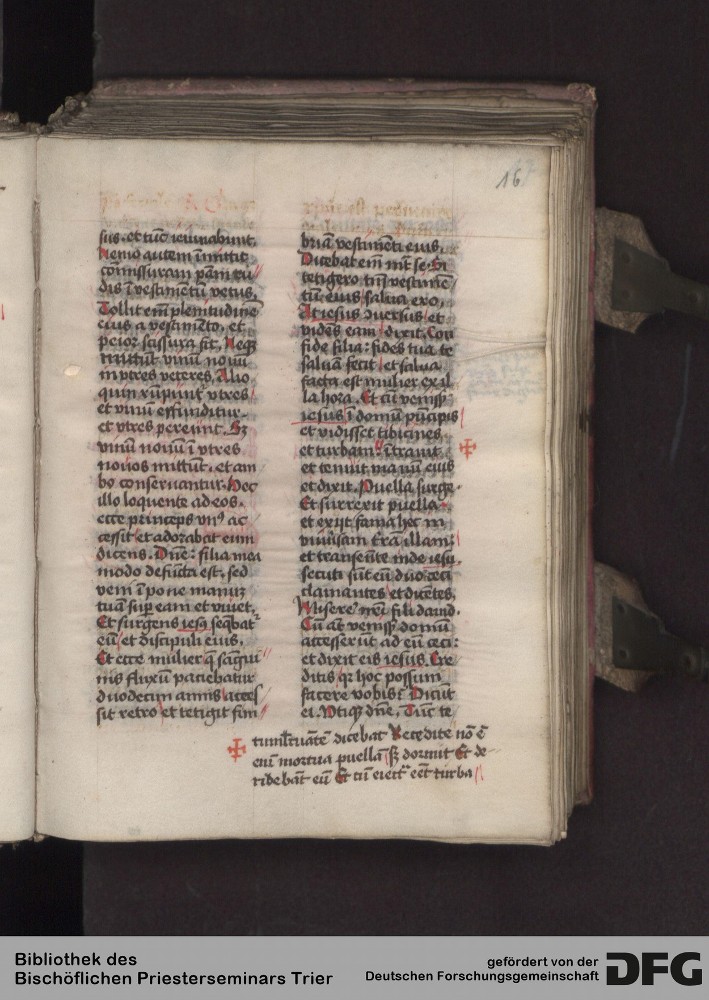 16
sus. et tūc ieiunabunt.
Nemo autem īmittit
cōmissuram pāni ru
dis ī vestimētū vetus.
Tollit em̄ plenitudinē
eius a vestimēto, et
peior scissura fit. Neqꝫ
mittūt vinū nouū
in vtres veteres. Alio
quin rūpūnt vtres
et vinū effunditur.
et vtres pereunt. Sꝫ
vinū nouū ī vtres
nouos mittūt. et am
bo conseruantur. Hec
illo loquente ad eos.
ecce princeps vnꝰ ac
cessit et adorabat eum
dicens. Dn̄e: filia mea
modo defūcta est. sed
veni īpone manuꝫ
tuā suꝑ eam et viuet.
Et surgens iesꝰ seq̄bat᷑
eū et discipuli eius.
Et ecce mulier q̄ sāgui
nis fluxū paciebatur
duodecim annis acces
sit retro et tetigit fim
briā vestimēti eius.
Dicebat em̄ int᷑ se. Si
tetigero tm̄ vestimē
tū eius salua ero.
At iesus ꝯuersus et
vidēs eam dixit. Con
fide filia: fides tua te
saluā fecit et salua
facta est mulier ex il
la hora. Et cū venissꝫ
iesus ī domū pn̄cipis
et vidisset tibicines
et turbam ītrauit
et tenuit manū eius
et dixit. Puella surge.
Et surrexit puella.
et exijt fama hec in
vniūsam t̄rā illam:
et transeūte inde iesu
secuti sūt eū duo ceci
clamantes et dicētes.
Miserē nr̄i fili dauid.
Cū at̄ venissꝫ domū
accesserūt ad eū ceci:
et dixit eis iesus. Cre
ditis qꝛ hoc possum
facere vobis? Dicūt
ei. Vtiqꝫ dn̄e. Tūc te
tumltuātē dicebat Recedite nō ē
enī mortua puella sꝫ dormit Et de
ridebāt eū Et cū eiectᵃ eēt turba
Bibliothek des
Bischöflichen Priesterseminars Trier
gefördert von der
Deutschen Forschungsgemeinschaft
DFG